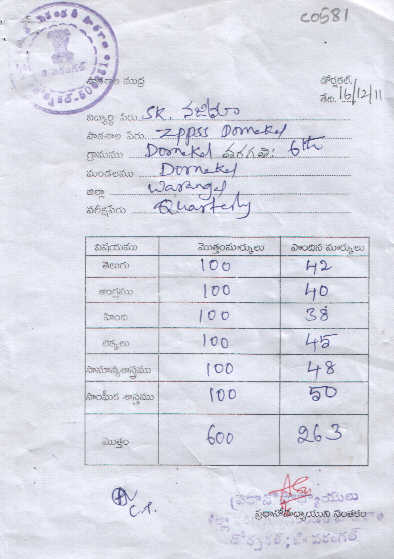 C0581
పాఠశాల ముద్ర
డోర్నకల్,
తేది. 16/12/11
విద్యార్థి పేరు. SK. నజీమా
పాఠశాల పేరు. ZPPSS Dornakal
గ్రామము Dornakal తరగతి: 6th
మండలము Dornakal
జిల్లా Warangal
పరీక్షపేరు Quarterly
విషయము మొత్తంమార్కులు పొందిన మార్కులు
తెలుగు 100 42
ఆంగ్లము 100 40
హింది 100 38
లెక్కలు 100 45
సామాన్యశాస్త్రము 100 48
సాంఘీక శాస్త్రము 100 50
మొత్తం 600 263
C.T.
ప్రధానోపాధ్యాయులు
ప్రధానోపాధ్యాయుని సంతకం